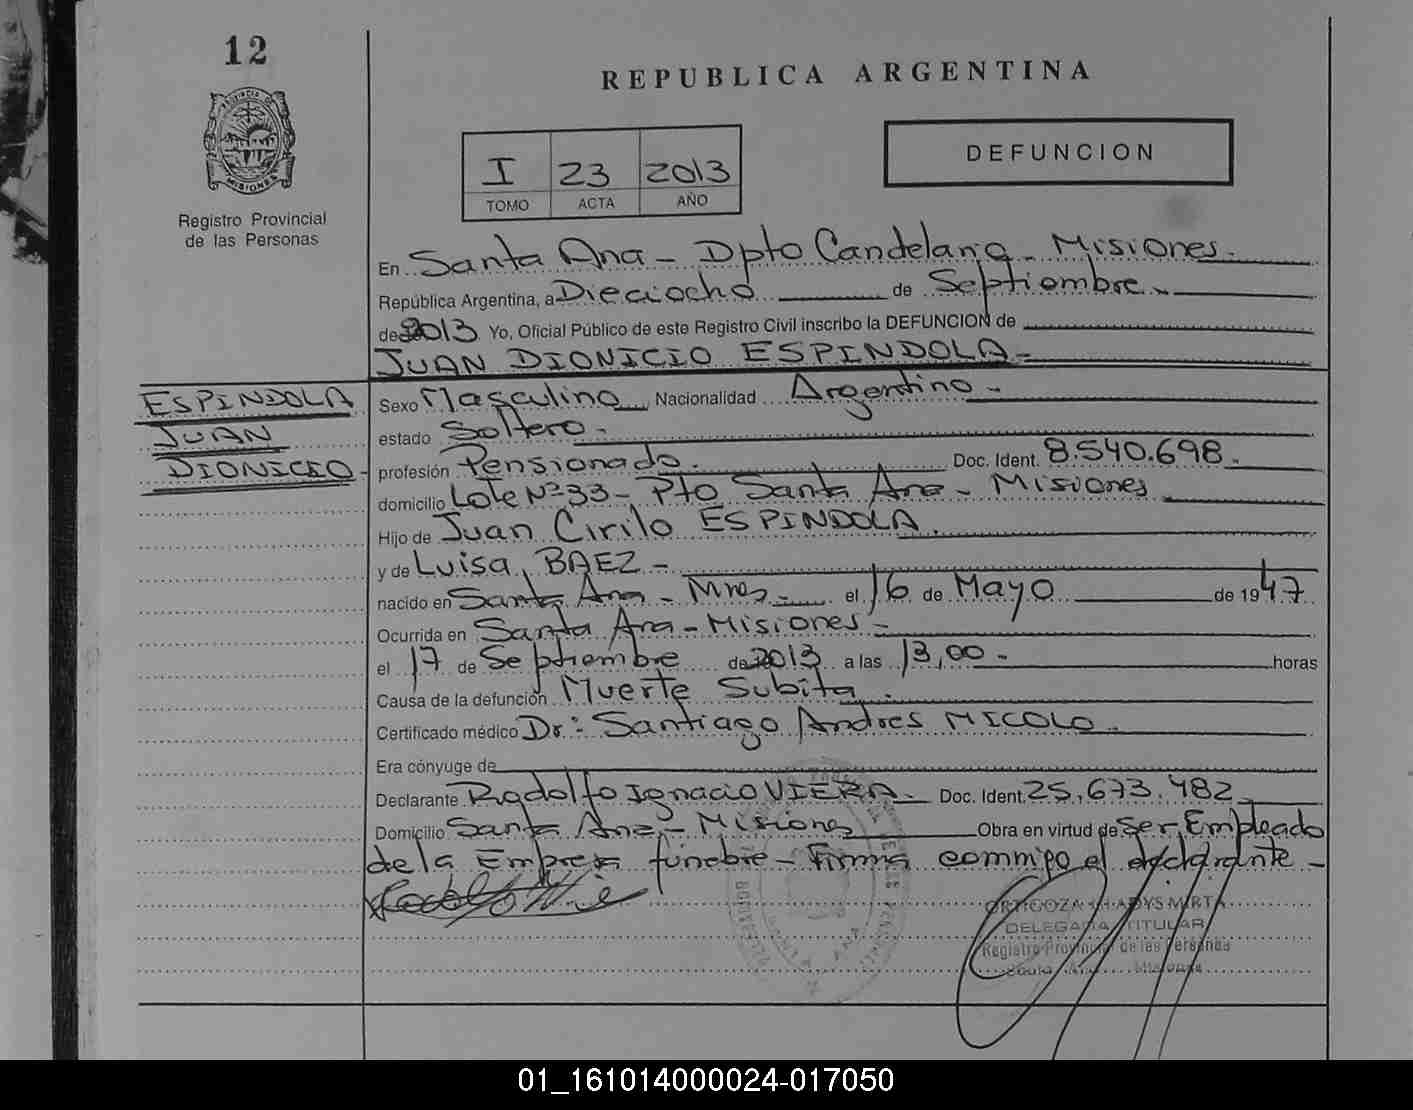 12
REPUBLICA ARGENTINA
PROVINCIA DE
MISIONES
Registro Provincial
de las Personas
I 23 2013
TOMO ACTA AÑO
DEFUNCION
En Santa Ana - Dpto Candelaria - Misiones -
República Argentina, a Dieciocho de Septiembre
de 2013 Yo, Oficial Público de este Registro Civil inscribo la DEFUNCION de
JUAN DIONICIO ESPINDOLA -
ESPINDOLA
JUAN
DIONICIO -
Sexo Masculino Nacionalidad Argentino -
estado Soltero -
profesión Pensionado. Doc. Ident. 8.540.698 -
domicilio Lote Nº 33 - Pto Santa Ana - Misiones
Hijo de Juan Cirilo ESPINDOLA.
y de Luisa BAEZ -
nacido en Santa Ana - Mnes - el 16 de Mayo de 1947
Ocurrida en Santa Ana - Misiones -
el 17 de Septiembre de 2013 a las 13,00 - horas
Causa de la defunción Muerte Subita.
Certificado médico Dr: Santiago Andres MICOLO.
Era cónyuge de
Declarante Rodolfo Ignacio VIERA - Doc. Ident. 25.673.482
Domicilio Santa Ana - Misiones Obra en virtud de Ser Empleado
de la Empresa funebre - Firma conmigo el declarante -
ORTIGOZA GLADYS MIRTA
DELEGADA TITULAR
Registro Provincial de las Personas
Santa Ana Misiones
SANTA ANA
01_161014000024-017050